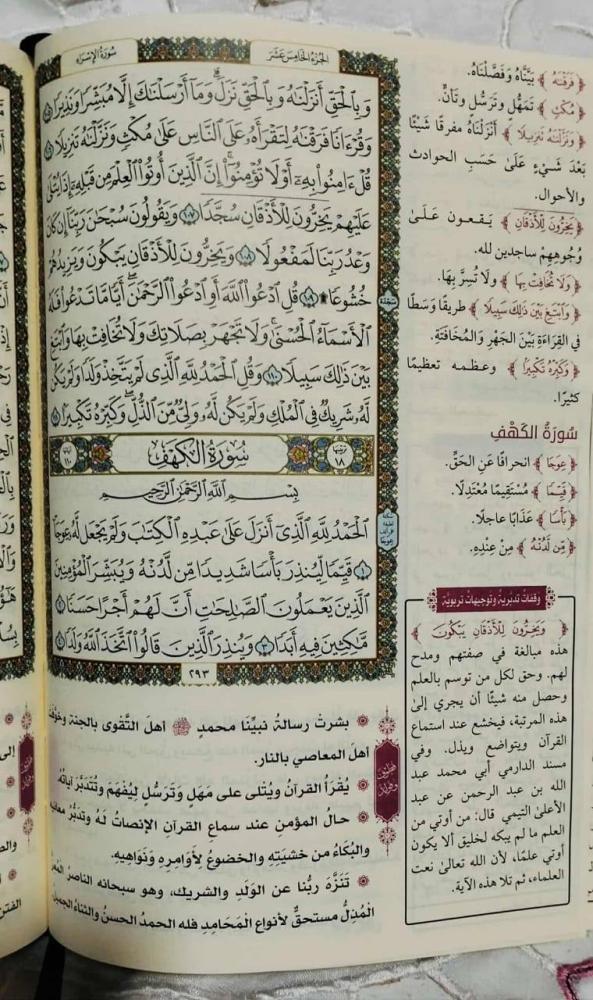 سُورَةُ الإِسْرَاء
الجُزْءُ الخَامِسَ عَشَرَ
وَبِالْحَقِّ أَنزَلْنَٰهُ وَبِالْحَقِّ نَزَلَ ۗ وَمَا أَرْسَلْنَٰكَ إِلَّا مُبَشِّرًا وَنَذِيرًا ١٠٥
وَقُرْءَانًا فَرَقْنَٰهُ لِتَقْرَأَهُۥ عَلَى النَّاسِ عَلَىٰ مُكْثٍ وَنَزَّلْنَٰهُ تَنزِيلًا ١٠٦
قُلْ ءَامِنُوا۟ بِهِۦٓ أَوْ لَا تُؤْمِنُوٓا۟ ۚ إِنَّ الَّذِينَ أُوتُوا۟ الْعِلْمَ مِن قَبْلِهِۦٓ إِذَا يُتْلَىٰ
عَلَيْهِمْ يَخِرُّونَ لِلْأَذْقَانِ سُجَّدًا ١٠٧ وَيَقُولُونَ سُبْحَٰنَ رَبِّنَآ إِن كَانَ
وَعْدُ رَبِّنَا لَمَفْعُولًا ١٠٨ وَيَخِرُّونَ لِلْأَذْقَانِ يَبْكُونَ وَيَزِيدُهُمْ
خُشُوعًا ۩ ١٠٩ قُلِ ادْعُوا۟ اللَّهَ أَوِ ادْعُوا۟ الرَّحْمَٰنَ ۖ أَيًّا مَّا تَدْعُوا۟ فَلَهُ
الْأَسْمَآءُ الْحُسْنَىٰ ۚ وَلَا تَجْهَرْ بِصَلَاتِكَ وَلَا تُخَافِتْ بِهَا وَابْتَغِ
بَيْنَ ذَٰلِكَ سَبِيلًا ١١٠ وَقُلِ الْحَمْدُ لِلَّهِ الَّذِى لَمْ يَتَّخِذْ وَلَدًا وَلَمْ يَكُن
لَّهُۥ شَرِيكٌ فِى الْمُلْكِ وَلَمْ يَكُن لَّهُۥ وَلِىٌّ مِّنَ الذُّلِّ ۖ وَكَبِّرْهُ تَكْبِيرًا ١١١
سَجْدَة
ترتيبها ١٨
سُورَةُ الكَهْفِ
آياتها ١١٠
بِسْمِ اللَّهِ الرَّحْمَٰنِ الرَّحِيمِ
الْحَمْدُ لِلَّهِ الَّذِىٓ أَنزَلَ عَلَىٰ عَبْدِهِ الْكِتَٰبَ وَلَمْ يَجْعَل لَّهُۥ عِوَجَا
١ قَيِّمًا لِّيُنذِرَ بَأْسًا شَدِيدًا مِّن لَّدُنْهُ وَيُبَشِّرَ الْمُؤْمِنِينَ
الَّذِينَ يَعْمَلُونَ الصَّٰلِحَٰتِ أَنَّ لَهُمْ أَجْرًا حَسَنًا ٢
مَّٰكِثِينَ فِيهِ أَبَدًا ٣ وَيُنذِرَ الَّذِينَ قَالُوا۟ اتَّخَذَ اللَّهُ وَلَدًا ٤
٢٩٣
﴿فَرَقْنَٰهُ﴾ بَيَّنَّاهُ وَفَصَّلْنَاهُ.
﴿مُكْثٍ﴾ تَمَهُّلٍ وَتَرَسُّلٍ وتَأَنٍّ.
﴿وَنَزَّلْنَٰهُ تَنزِيلًا﴾ أَنْزَلْنَاهُ مفرقًا شَيْئًا
بَعْدَ شَيْءٍ عَلَىٰ حَسَبِ الحوادث
والأحوال.
﴿يَخِرُّونَ لِلْأَذْقَانِ﴾ يَقعون عَلَىٰ
وُجُوهِهِمْ ساجدين لله.
﴿وَلَا تُخَافِتْ بِهَا﴾ ولا تُسِرَّ بِهَا.
﴿وَابْتَغِ بَيْنَ ذَٰلِكَ سَبِيلًا﴾ طريقًا وَسَطًا
في القِرَاءَةِ بَيْنَ الجَهْرِ وَالمُخَافَتَةِ.
﴿وَكَبِّرْهُ تَكْبِيرًا﴾ وعظمه تعظيمًا
كثيرًا.
سُورَةُ الكَهْفِ
﴿عِوَجَا﴾ انحرافًا عَنِ الحَقِّ.
﴿قَيِّمًا﴾ مُسْتَقِيمًا مُعْتَدِلًا.
﴿بَأْسًا﴾ عَذَابًا عاجلًا.
﴿مِّن لَّدُنْهُ﴾ مِنْ عِنْدِهِ.
وقفات تدبرية وتوجيهات تربوية
﴿وَيَخِرُّونَ لِلْأَذْقَانِ يَبْكُونَ﴾
هذه مبالغة في صفتهم ومدح
لهم. وحق لكل من توسم بالعلم
وحصل منه شيئًا أن يجري إلى
هذه المرتبة، فيخشع عند استماع
القرآن ويتواضع ويذل. وفي
مسند الدارمي أبي محمد عبد
الله بن عبد الرحمن عن عبد
الأعلى التيمي قال: من أوتي من
العلم ما لم يبكه لخليق ألا يكون
أوتي علمًا، لأن الله تعالى نعت
العلماء، ثم تلا هذه الآية.
بشرت رسالةُ نبيِّنا محمدٍ ﷺ أهلَ التَّقوى بالجنة وخوفت
أهل المعاصي بالنار.
يُقْرَأُ القرآنُ ويُتْلى على مَهَلٍ وتَرَسُّلٍ لِيُفْهَمَ وتُتَدَبَّرَ آياتُهُ
حال المؤمنِ عند سماعِ القرآنِ الإنصاتُ لَهُ وتَدَبُّرُ معانيه
والبُكَاءُ من خشيَتِهِ والخضوعُ لأوَامِرِهِ وَنَوَاهِيهِ.
تَنَزَّهَ ربُّنا عن الوَلَدِ والشريك، وهو سبحانه الناصر المُعِزُّ
الْمُذِلُّ مستحقٌّ لأنواع الْمَحَامِدِ فله الحمدُ الحسنُ والثناءُ الجميلُ